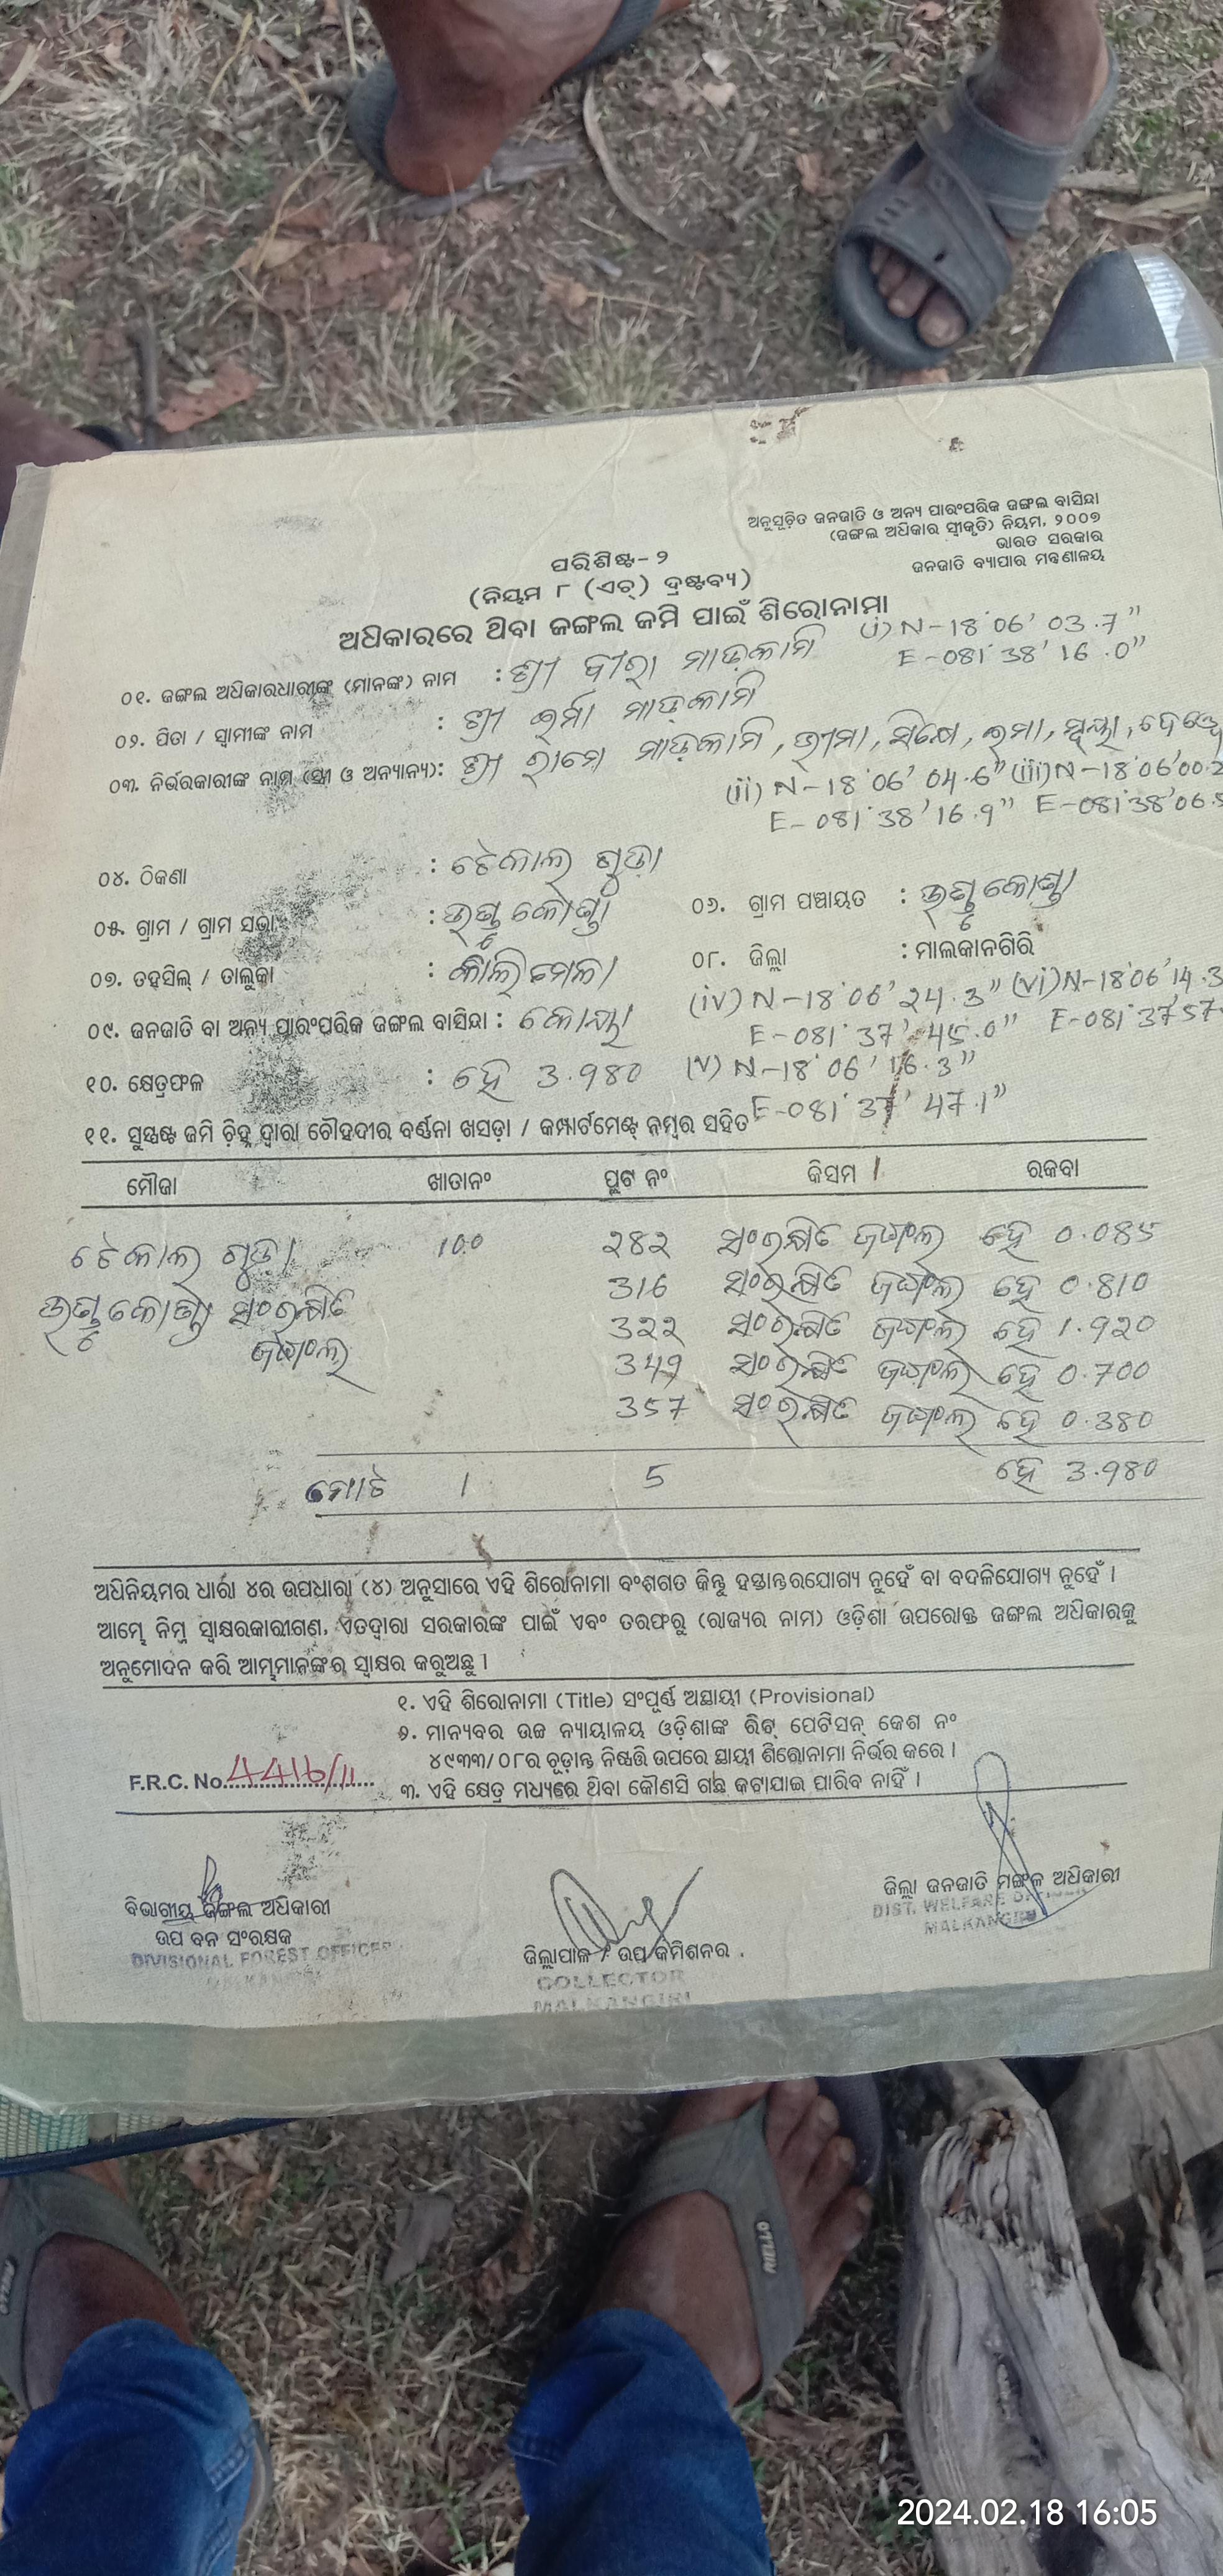 ଅନୁସୂଚିତ ଜନଜାତି ଓ ଅନ୍ୟ ପାରଂପରିକ ଜଙ୍ଗଲ ବାସିନ୍ଦା
(ଜଙ୍ଗଲ ଅଧିକାର ସ୍ୱୀକୃତି) ନିୟମ, ୨୦୦୭
ଭାରତ ସରକାର
ଜନଜାତି ବ୍ୟାପାର ମନ୍ତ୍ରଣାଳୟ
ପରିଶିଷ୍ଟ - ୨
(ନିୟମ ୮ (ଏଚ୍) ଦ୍ରଷ୍ଟବ୍ୟ)
ଅଧିକାରରେ ଥିବା ଜଙ୍ଗଲ ଜମି ପାଇଁ ଶିରୋନାମା
(i) N-18°06' 03.7"
E-081°38' 16.0"
୦୧. ଜଙ୍ଗଲ ଅଧିକାରଧାରୀଙ୍କ (ମାନଙ୍କ) ନାମ : ଶ୍ରୀ ବୀରା ମାଡ଼କାମି
୦୨. ପିତା / ସ୍ୱାମୀଙ୍କ ନାମ : ଶ୍ରୀ ଇର୍ମା ମାଡ଼କାମି
୦୩. ନିର୍ଭରକାରୀଙ୍କ ନାମ (ସ୍ତ୍ରୀ ଓ ଅନ୍ୟାନ୍ୟ): ଶ୍ରୀ ରାମେ ମାଡ଼କାମି, ଭୀମା,
(ii) N-18°06' 04.6" (iii) N-18°06'00.2
E-081°38'16.9" E-081°38'06.5
୦୪. ଠିକଣା : ଟେକାଲ ଗୁଡ଼ା
୦୫. ଗ୍ରାମ / ଗ୍ରାମ ସଭା : ୦୬. ଗ୍ରାମ ପଞ୍ଚାୟତ :
୦୭. ତହସିଲ୍ / ତାଲୁକା : କାଲିମେଳା ୦୮. ଜିଲ୍ଲା : ମାଲକାନଗିରି
(iv) N-18°06' 24.3" (vi) N-18°06'14.3
୦୯. ଜନଜାତି ବା ଅନ୍ୟ ପାରଂପରିକ ଜଙ୍ଗଲ ବାସିନ୍ଦା : କୋୟା
E-081°37' 45.0" E-081°37'57
୧୦. କ୍ଷେତ୍ରଫଳ : ହେ 3.980 (v) N-18°06' 16.3"
E-081°37' 47.1"
୧୧. ସୁସ୍ପଷ୍ଟ ଜମି ଚିହ୍ନ ଦ୍ୱାରା ଚୌହଦୀର ବର୍ଣ୍ଣନା ଖସଡ଼ା / କମ୍ପାର୍ଟମେଣ୍ଟ୍ ନମ୍ବର ସହିତ
ମୌଜା ଖାତାନଂ ପ୍ଲଟ ନଂ କିସମ ରକବା
ଟେକାଲ ଗୁଡ଼ା 100 282 ସଂରକ୍ଷିତ ଜଙ୍ଗଲ ହେ 0.085
316 ସଂରକ୍ଷିତ ଜଙ୍ଗଲ ହେ 0.810
ସଂରକ୍ଷିତ 322 ସଂରକ୍ଷିତ ଜଙ୍ଗଲ ହେ 1.920
ଜଙ୍ଗଲ 349 ସଂରକ୍ଷିତ ଜଙ୍ଗଲ ହେ 0.700
357 ସଂରକ୍ଷିତ ଜଙ୍ଗଲ ହେ 0.380
ମୋଟ 1 5 ହେ 3.980
ଅଧିନିୟମର ଧାରା ୪ର ଉପଧାରା (୪) ଅନୁସାରେ ଏହି ଶିରୋନାମା ବଂଶଗତ କିନ୍ତୁ ହସ୍ତାନ୍ତରଯୋଗ୍ୟ ନୁହେଁ ବା ବଦଳିଯୋଗ୍ୟ ନୁହେଁ ।
ଆମ୍ଭେ ନିମ୍ନ ସ୍ୱାକ୍ଷରକାରୀଗଣ, ଏତଦ୍ୱାରା ସରକାରଙ୍କ ପାଇଁ ଏବଂ ତରଫରୁ (ରାଜ୍ୟର ନାମ) ଓଡ଼ିଶା ଉପରୋକ୍ତ ଜଙ୍ଗଲ ଅଧିକାରକୁ
ଅନୁମୋଦନ କରି ଆମ୍ଭମାନଙ୍କର ସ୍ୱାକ୍ଷର କରୁଅଛୁ ।
୧. ଏହି ଶିରୋନାମା (Title) ସଂପୂର୍ଣ୍ଣ ଅସ୍ଥାୟୀ (Provisional)
୨. ମାନ୍ୟବର ଉଚ୍ଚ ନ୍ୟାୟାଳୟ ଓଡ଼ିଶାଙ୍କ ରିଟ୍ ପେଟିସନ୍ କେଶ ନଂ
୪୯୩୩/୦୮ର ଚୂଡ଼ାନ୍ତ ନିଷ୍ପତ୍ତି ଉପରେ ସ୍ଥାୟୀ ଶିରୋନାମା ନିର୍ଭର କରେ ।
F.R.C. No. 4416/11
୩. ଏହି କ୍ଷେତ୍ର ମଧ୍ୟରେ ଥିବା କୌଣସି ଗଛ କଟାଯାଇ ପାରିବ ନାହିଁ ।
ବିଭାଗୀୟ ଜଙ୍ଗଲ ଅଧିକାରୀ
ଉପ ବନ ସଂରକ୍ଷକ
DIVISIONAL FOREST OFFICER
MALKANGIRI
ଜିଲ୍ଲାପାଳ / ଉପ କମିଶନର
COLLECTOR
MALKANGIRI
ଜିଲ୍ଲା ଜନଜାତି ମଙ୍ଗଳ ଅଧିକାରୀ
DIST. WELFARE OFFICER
MALKANGIRI
RIELLO
2024.02.18 16:05